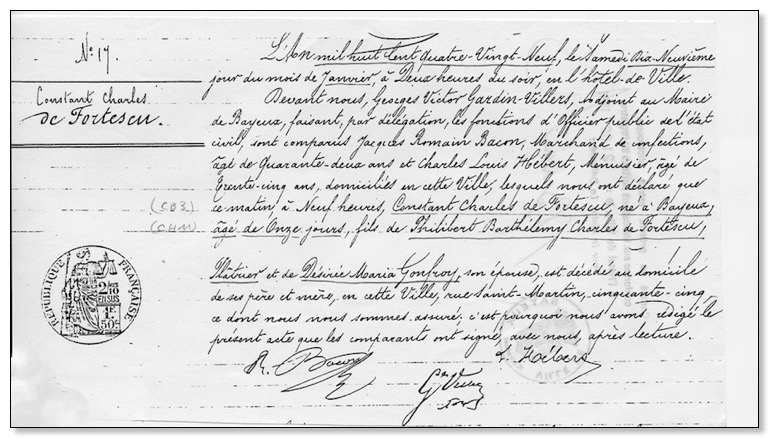 N° 17
Constant Charles
de Fortescu.
L'An mil huit Cent Quatre-Vingt-Neuf, le Samedi Dix-Neuvième
jour du mois de Janvier, à Deux heures du soir, en l'hôtel-de-Ville.
Devant nous, Georges Victor Gardin-Villers, Adjoint au Maire
de Bayeux, faisant, par délégation, les fonctions d'Officier public de l'état
civil, sont comparus Jacques Romain Bacon, Marchand de confections,
âgé de Quarante-deux ans et Charles Louis Hébert, Menuisier, âgé de
trente-cinq ans, domiciliés en cette Ville, lesquels nous ont déclaré que
ce matin à Neuf heures, Constant Charles de Fortescu, né à Bayeux,
âgé de Onze jours, fils de Philibert Barthélemy Charles de Fortescu,
Plâtrier et de Désirée Maria Gonfroy, son épouse, est décédé au domicile
de ses père et mère, en cette Ville, rue Saint-Martin, cinquante-cinq,
ce dont nous nous sommes assuré, c'est pourquoi nous avons rédigé le
présent acte que les comparants ont signé, avec nous, après lecture.
R. Bacon
L. Hébert
RÉPUBLIQUE FRANÇAISE
2/10
EN SUS
1F.
50c.